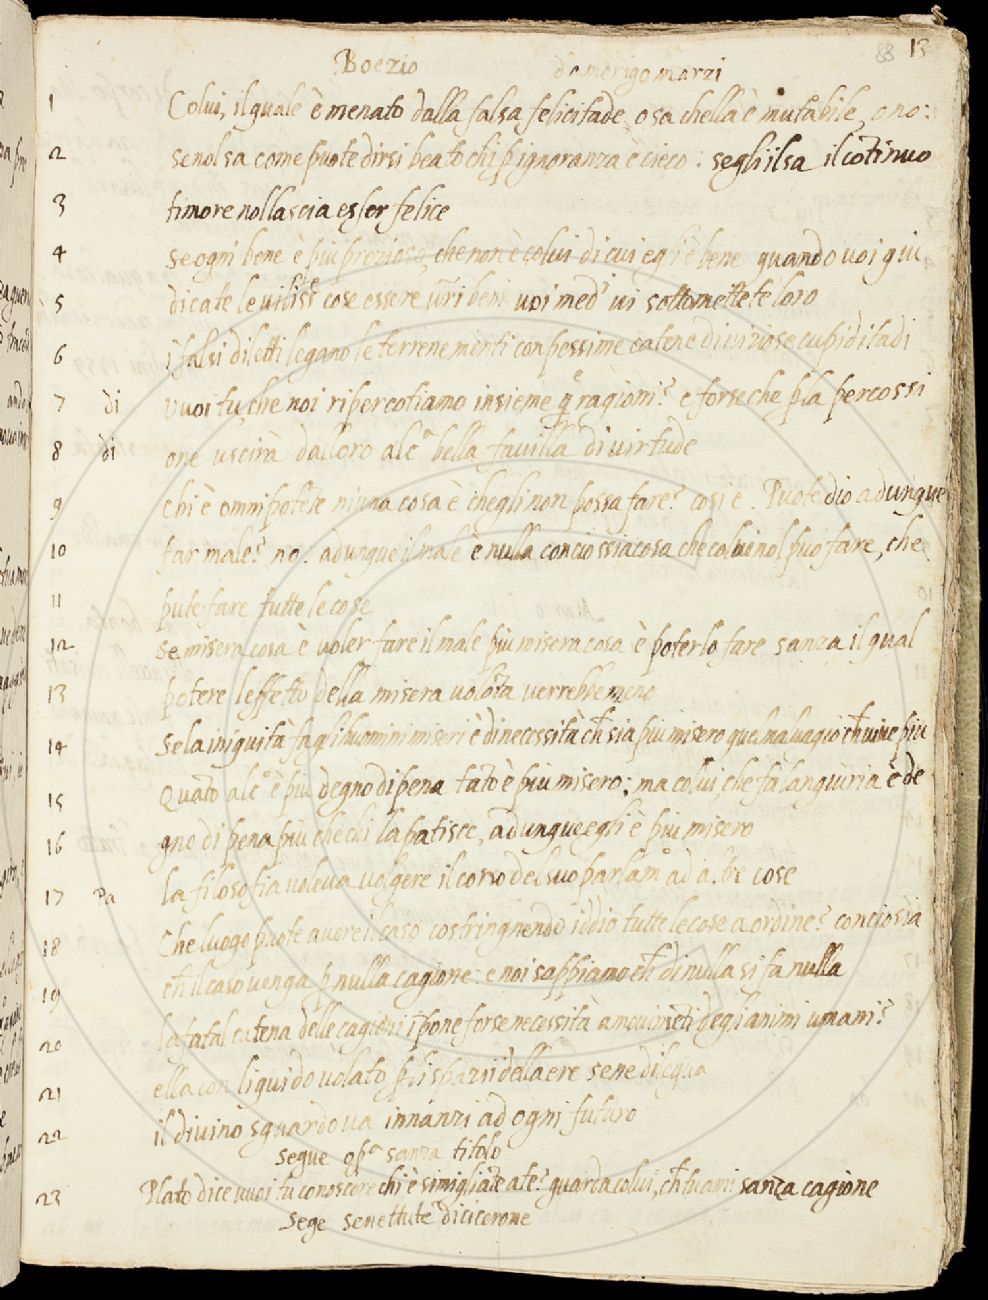 88 13
Boezio damerigo marzi
1 Colui, il quale è menato dalla falsa felicitade o sa chella è mutabile, o no:
2 se nol sa come puote dirsi beato chi p ignoranza è cieco: segli il sa il cōtinuo
3 timore nol lascia esser felice
4 se ogni bene è piu prezioso, che non è colui di cui egli è bene quando voi giu
5 dicate le viliss.e cose essere vr̄i beni voi med.i vi sottomettete loro
6 i falsi diletti legano le terrene menti con pessime catene di viziose cupiditadi
7 di vuoi tu che noi ripercotiamo insieme q.e ragioni? e forse che p la percossi
8 di one uscirà dalloro alc.a bella favilla di virtude
9 chi è omnipotēte niuna cosa è chegli non possa fare? cosi è. Puote dio adunque
10 far male? no. adunque il male è nulla conciossiacosa che colui nol può fare, che
11 pute fare tutte le cose
12 se misera cosa è voler fare il male piu misera cosa è poterlo fare sanza il qual
13 potere leffetto della misera volōta verrebe meno
14 se la iniquità fa gl'huomini miseri è di necessità ch̄ sia piu misero quel malvagio ch̄ vive piu
15 Quāto alc.o è più degno di pena tāto è piu misero: ma colui che fa langiuria è de
16 gno di pena più che chi la patisce, adunque egli è piu misero
17 Pa la filosofia voleva volgere il corso del suo parlam.o ad a.be cose
18 Che luogo puote avere il caso costringnendo iddio tutte le cose a ordine? conciosia
19 ch̄ il caso venga p nulla cagione: e noi sappiamo ch̄ di nulla si fa nulla
20 la fatal catena delle cagioni īpone forse necessità a movimēti degl'animi umani?
21 ella con liquido volato p li spazii dellaere sene dilegua
22 il divino sguardo va innanzi ad ogni futuro
segue op.a sanza titolo
23 Plato dice vuoi tu conoscere chi è simigliāte a te? guarda colui, ch̄ tu ami sanza cagione
Sege senettute di cicerone